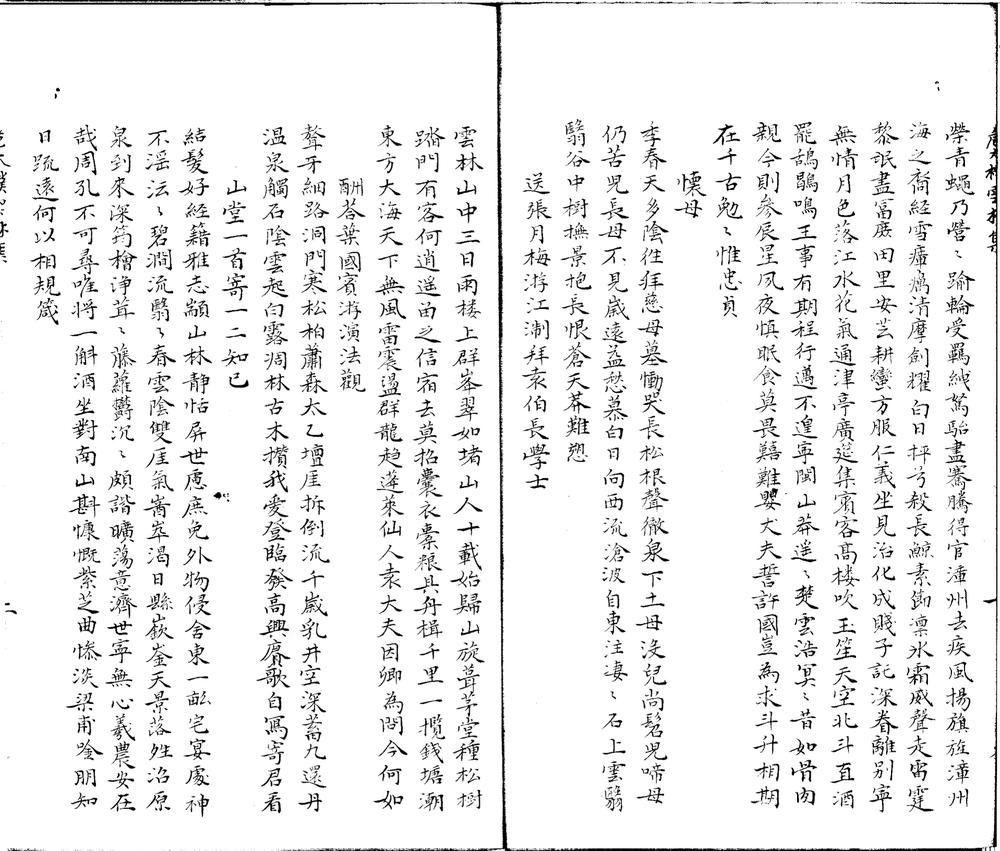 榮青蠅乃營〻踰輪受羈紲駑駘盡騫騰得官漳州去疾風揚旗旌漳州
海之裔經雪瘴癘清摩劍耀白日抨兮殺長鯨素節凜氷霜威聲走雷霆
黎氓盡富庶田里安芸耕蠻方服仁義坐見治化成賤子託深眷離别寧
無情月色落江水花氣通津亭廣筵集賓客髙樓吹玉笙天空北斗直酒
罷鵠鶚鳴王事有期程行邁不遑寧閩山莽遥〻楚雲浩冥〻昔如骨肉
親今則參辰星夙夜慎眠食莫畏囏難嬰丈夫誓許國豈為求斗升相期
在千古勉〻惟忠貞
懷母
季春天多陰往拜慈母墓慟哭長松根聲徹泉下土母沒兒尚髫兒啼母
仍苦兒長母不見歲遠益愁慕白日向西流滄波自東注凄〻石上雲翳
翳谷中樹撫景抱長恨蒼天莽難愬
送張月梅游江淛拜袁伯長學士
雲林山中三日雨楼上群峯翠如堵山人十載始歸山旋葺茅堂種松樹
踏門有客何逍遥苖之信宿去莫招囊衣橐粮具舟楫千里一攬錢塘潮
東方大海天下無風雷震盪群龍趍蓬萊仙人袁大夫因卿為問今何如
酬荅葉國賓游演法觀
聱牙細路洞門寒松柏蕭森太乙壇厓拆倒流千歲乳井空深蓄九還丹
温泉觸石陰雲起白露凋林古木攢我愛登臨發高興賡歌自寫寄君看
山堂一首寄一二知已
結髮好經籍雅志顓山林静恬屏世慮庶免外物侵舍東一畝宅宴處神
不滛泫〻碧澗流翳〻春雲陰雙厓氣嵛崒渇日縣嶔崟天景落陞治原
泉到來深筠檜浄茸〻藤蘿欝沉〻頗諧曠蕩意濟世寧無心羲農安在
哉周孔不可尋唯将一斛酒坐對南山斟慷慨紫芝曲惨淡梁甫唫朋知
日疏遠何以相規箴
二